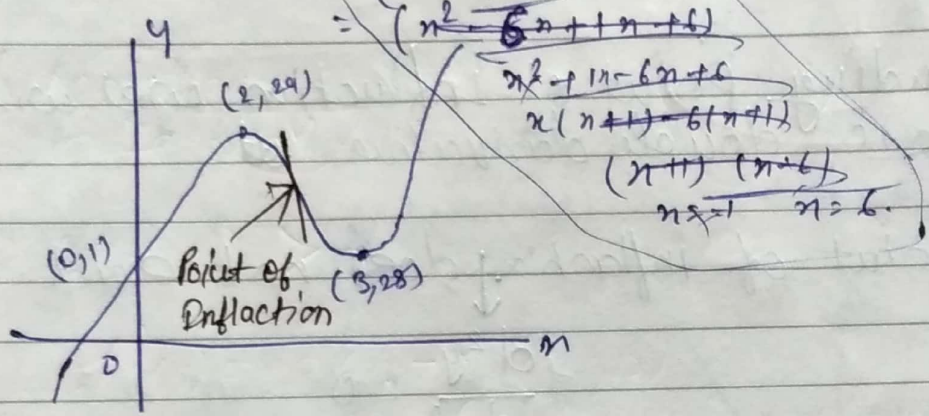 y
= (x² - 6x + 1x + 6)
x² + 1x - 6x + 6
x(x+1) - 6(x+1)
(x+1) (x-6)
x = -1 x = 6.
(2, 29)
(0,1)
Point of
Inflaction
(3,28)
0
x